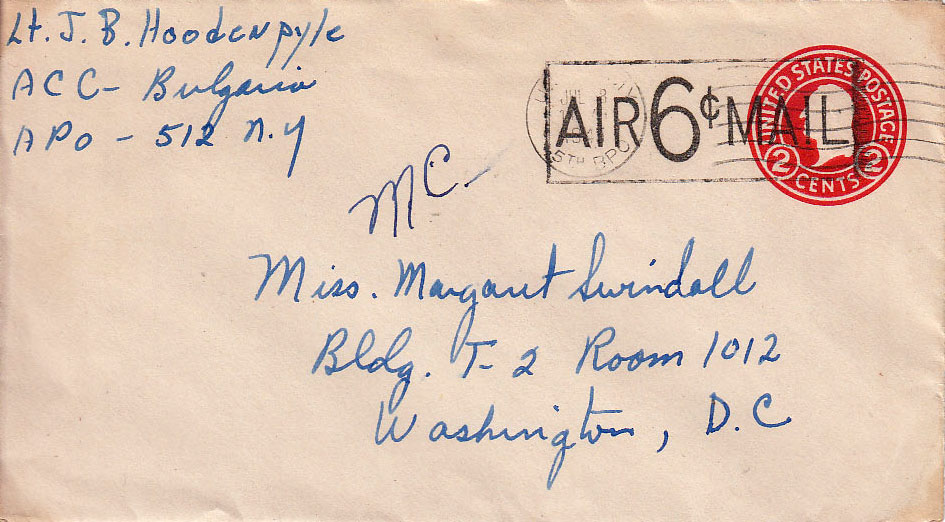 Lt. J. B. Hoodenpyle
ACC- Bulgaria
APO - 512 N.Y
AIR 6¢ MAIL
UNITED STATES POSTAGE
2 CENTS 2
MC-
Miss. Margaret Swindall
Bldg. T-2 Room 1012
Washington, D.C